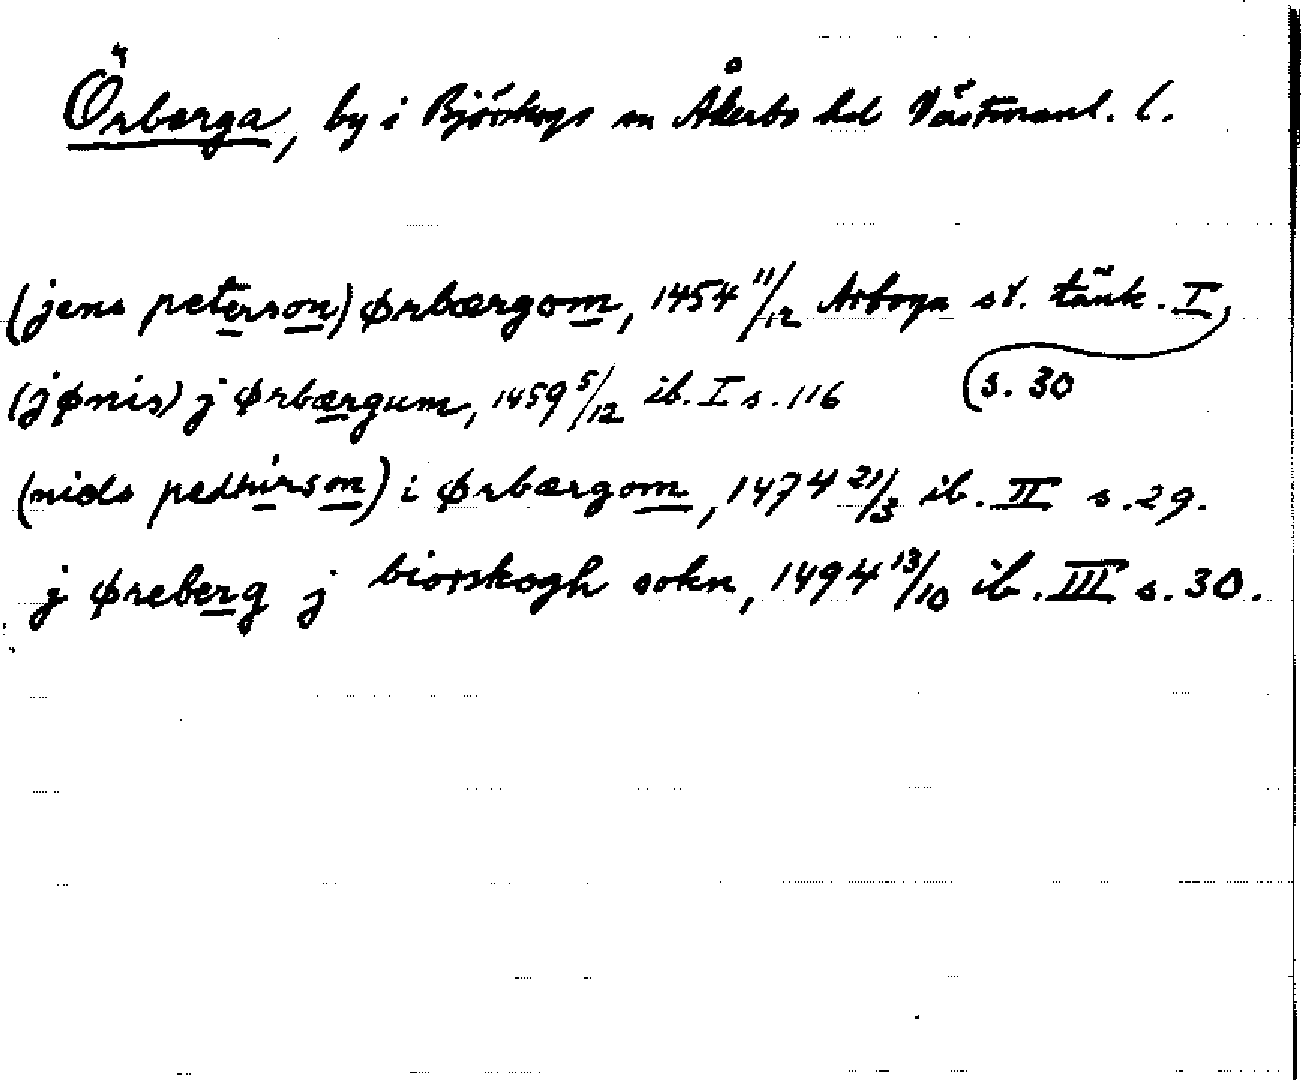 Örberga, by i Björskogs sn Åkerbo hd Västmanl. l.
(jens peterson) ørbærgom, 1454 11/12 Arboga st. tänk. I,
s. 30
(jønis) j ørbærgum, 1459 5/12 ib. I s. 116
(niels pedhirson) i ørbærgom, 1474 21/3 ib. II s. 29.
j øreberg j biorskogh sokn, 1494 13/10 ib. III s. 30.